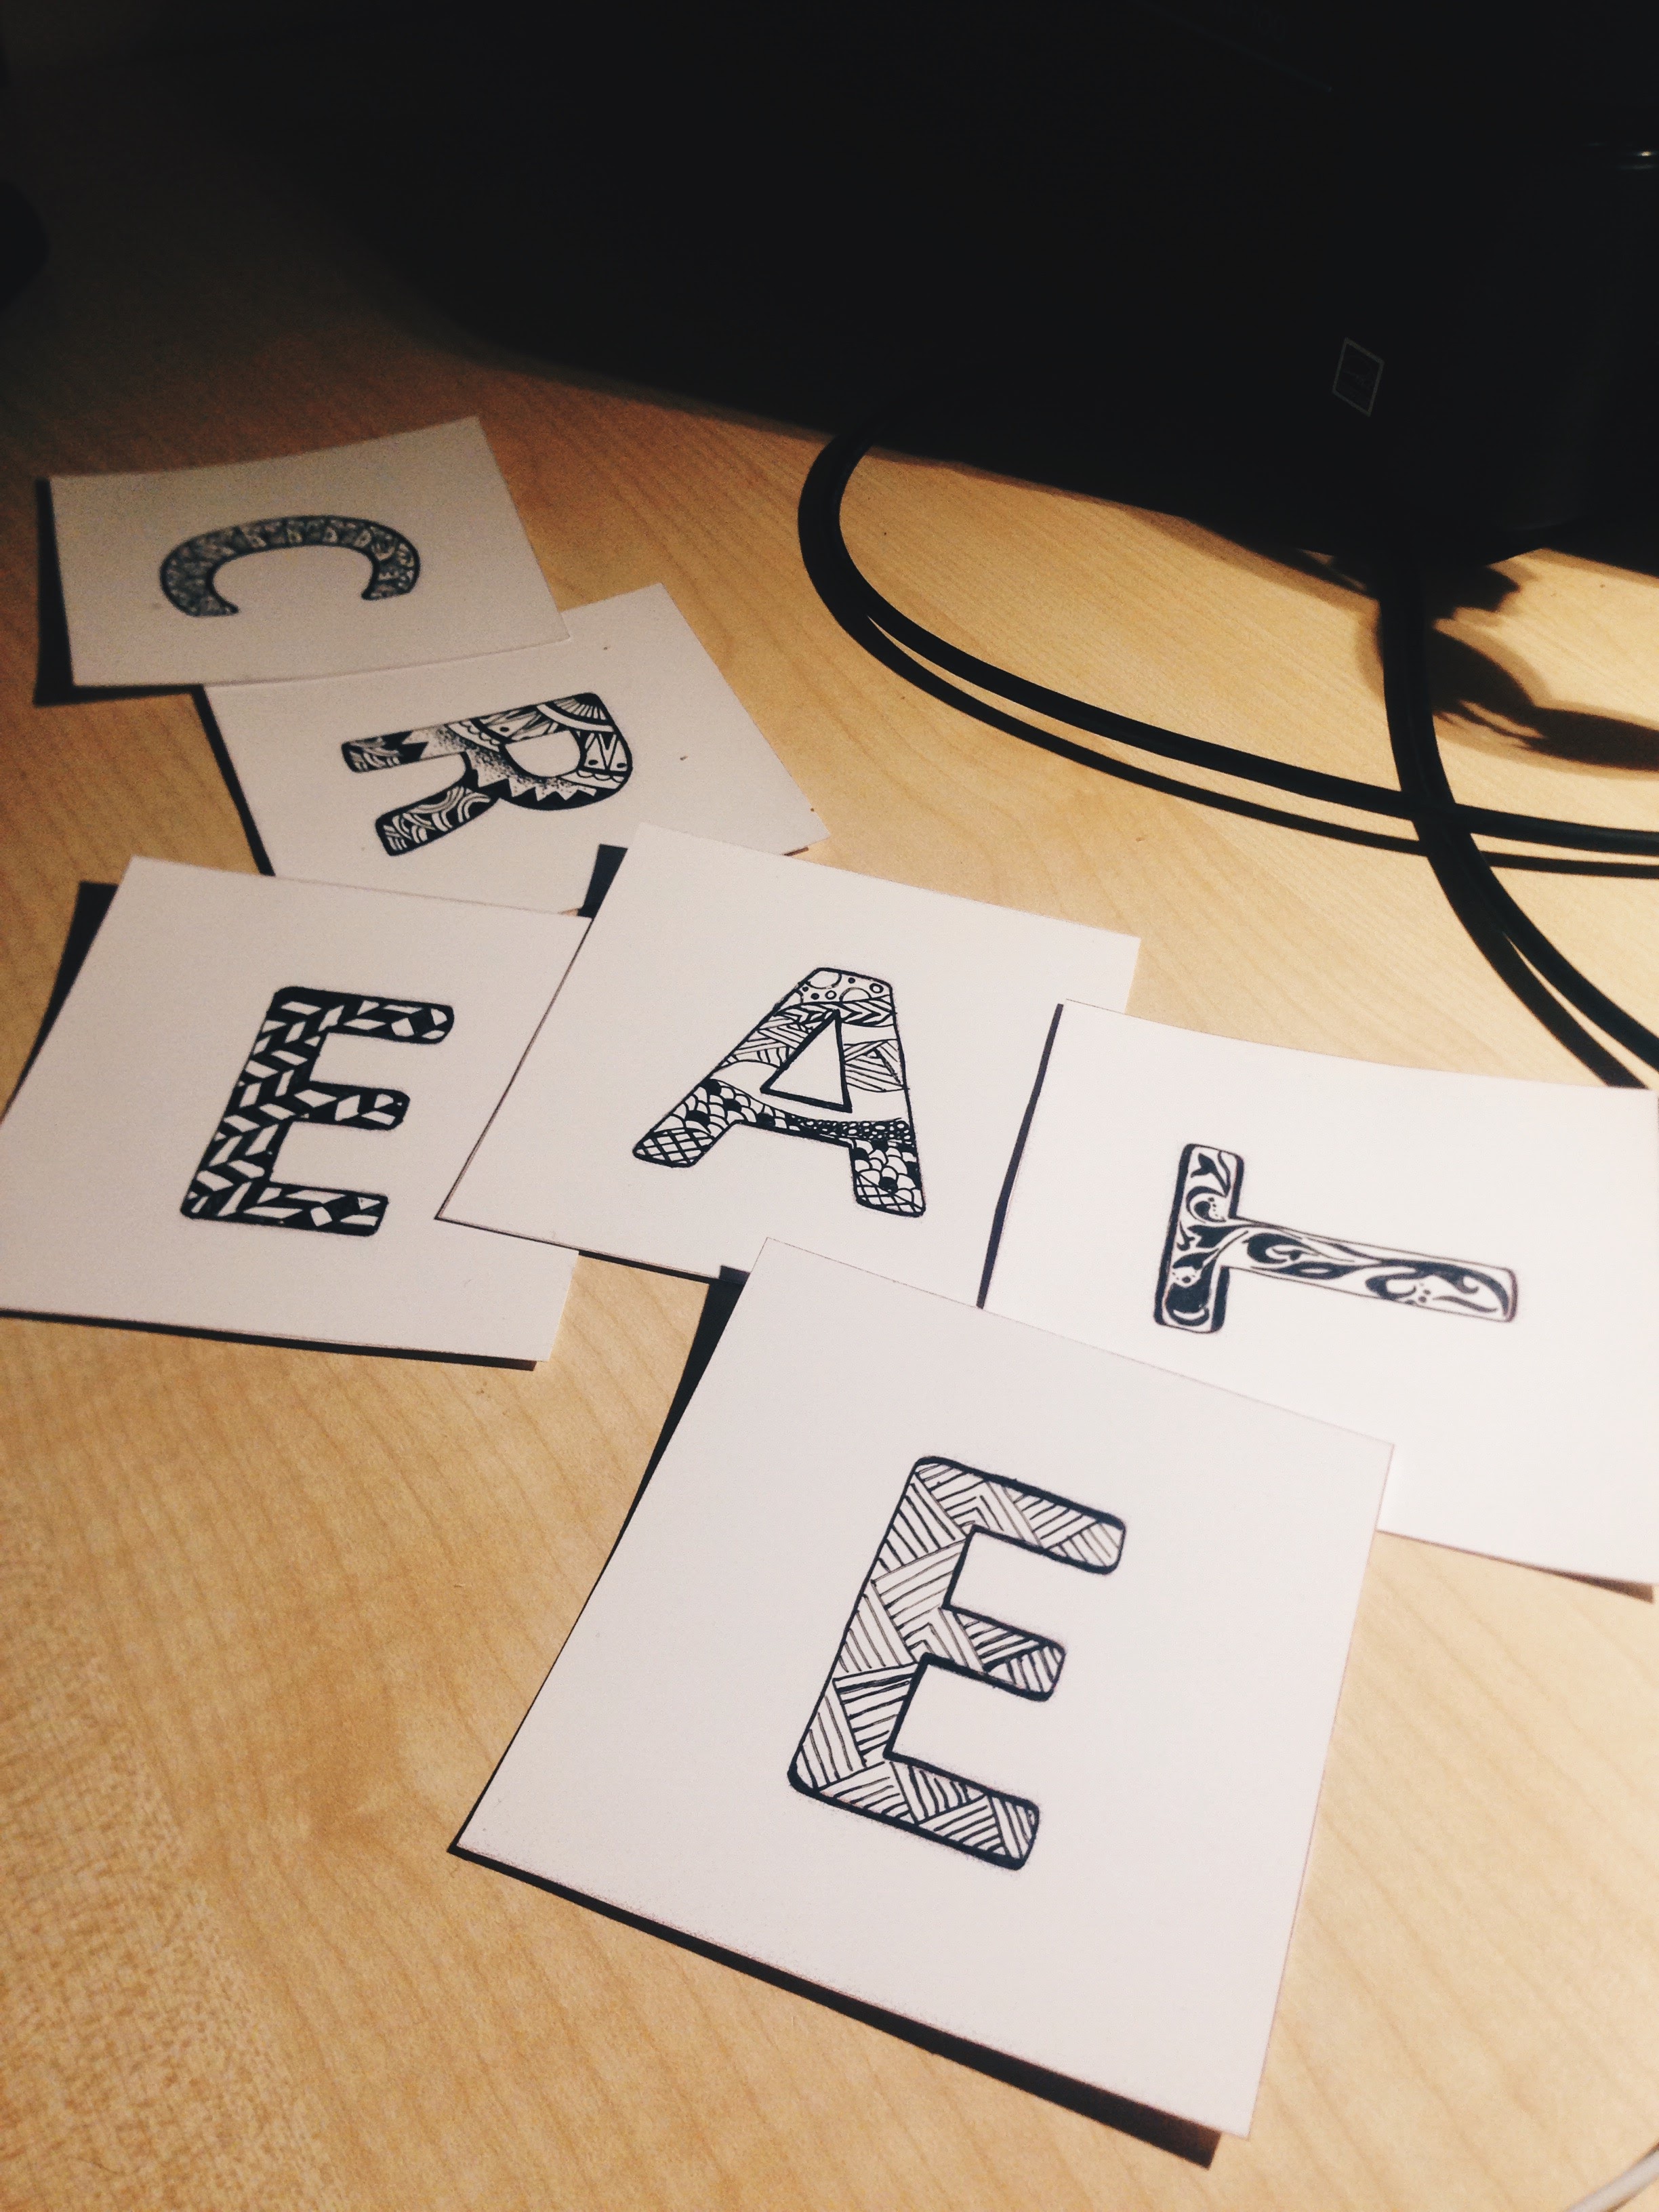 C
R
E A T
E